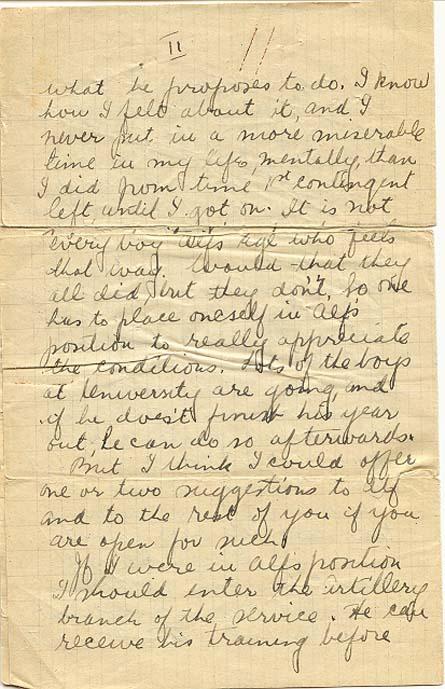 II
what he proposes to do. I know
how I felt about it, and I
never put in a more miserable
time in my life, mentally, than
I did from time 1st contingent
left, until I got on. It is not
every boy Alf's age who feels
that way. Would that they
all did, but they don't, so one
has to place oneself in Alf's
position to really appreciate
the conditions. Lots of the boys
at University are going, and
if he does't finish his year
out, he can do so afterwards.
But I think I could offer
one or two suggestions to Alf
and to the rest of you if you
are open for such.
If I were in Alf's position
I should enter the artillery
branch of the service. He can
receive his training before